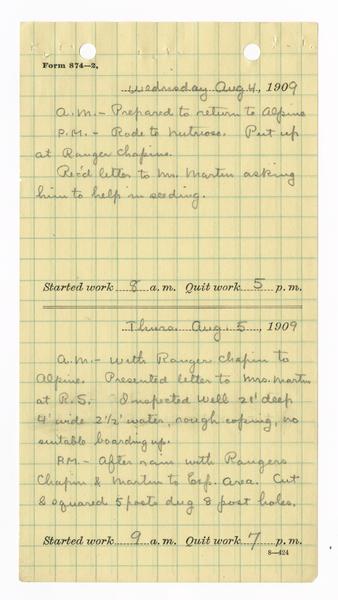 Form 874—2.
Wednesday Aug. 4, 1909
A.M. - Prepared to return to Alpine
P.M. - Rode to Nutrioso. Put up
at Ranger Chapins.
Rec'd letter to Mr. Martin asking
him to help in seeding.
Started work 8 a.m. Quit work 5 p.m.
Thurs. Aug. 5, 1909
A.M. - With Ranger Chapin to
Alpine. Presented letter to Mrs. Martin
at R.S. Inspected Well 21' deep
4' wide 2 1/2' water, rough coping, no
suitable boarding up.
P.M. - After rain with Rangers
Chapin & Martin to Exp. Area. Cut
& squared 5 posts dug 8 post holes.
Started work 9 a.m. Quit work 7 p.m.
8—424